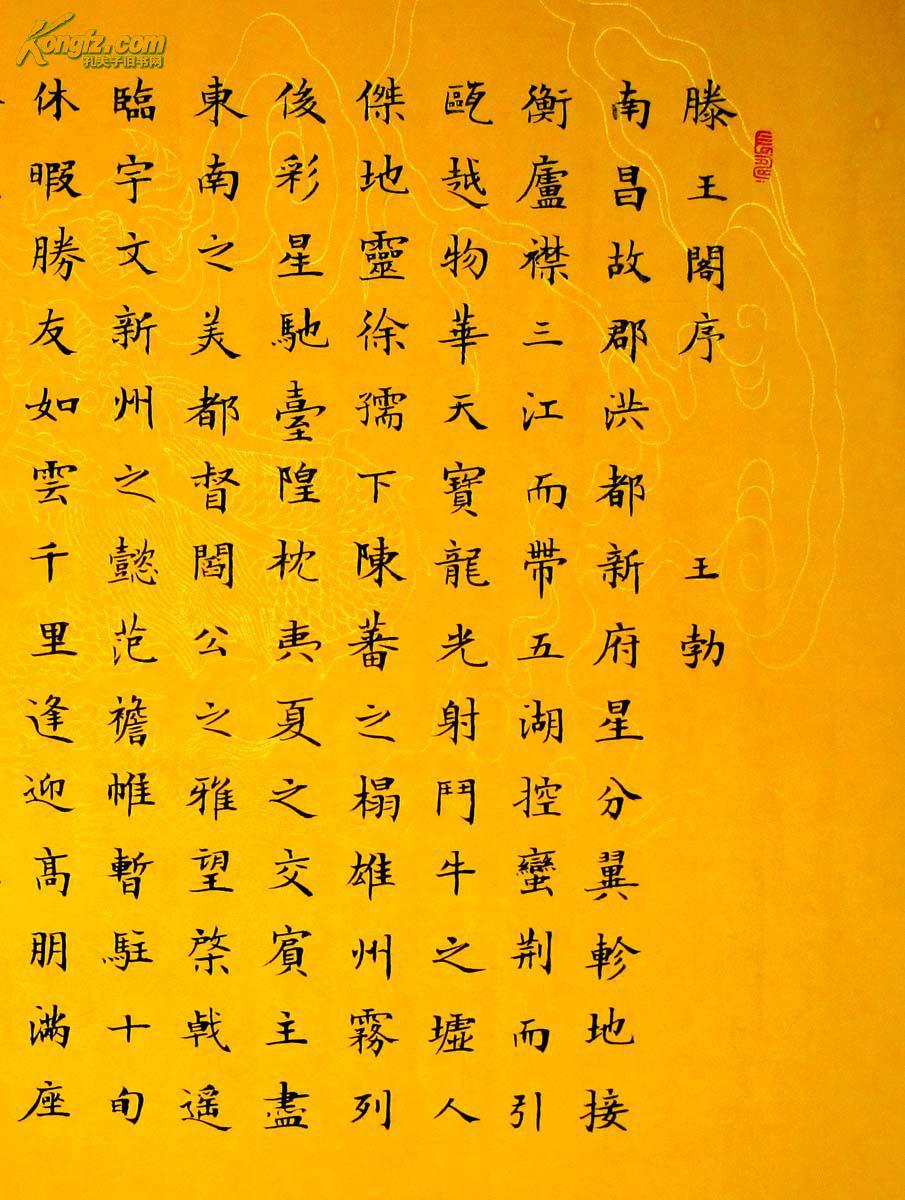 Kongfz.com
孔夫子旧书网
滕王閣序 王勃
南昌故郡洪都新府星分翼軫地接
衡廬襟三江而帶五湖控蠻荆而引
甌越物華天寶龍光射鬥牛之墟人
傑地靈徐孺下陳蕃之榻雄州霧列
俊彩星馳臺隍枕夷夏之交賓主盡
東南之美都督閻公之雅望棨戟遥
臨宇文新州之懿范襜帷暫駐十旬
休暇勝友如雲千里逢迎高朋滿座